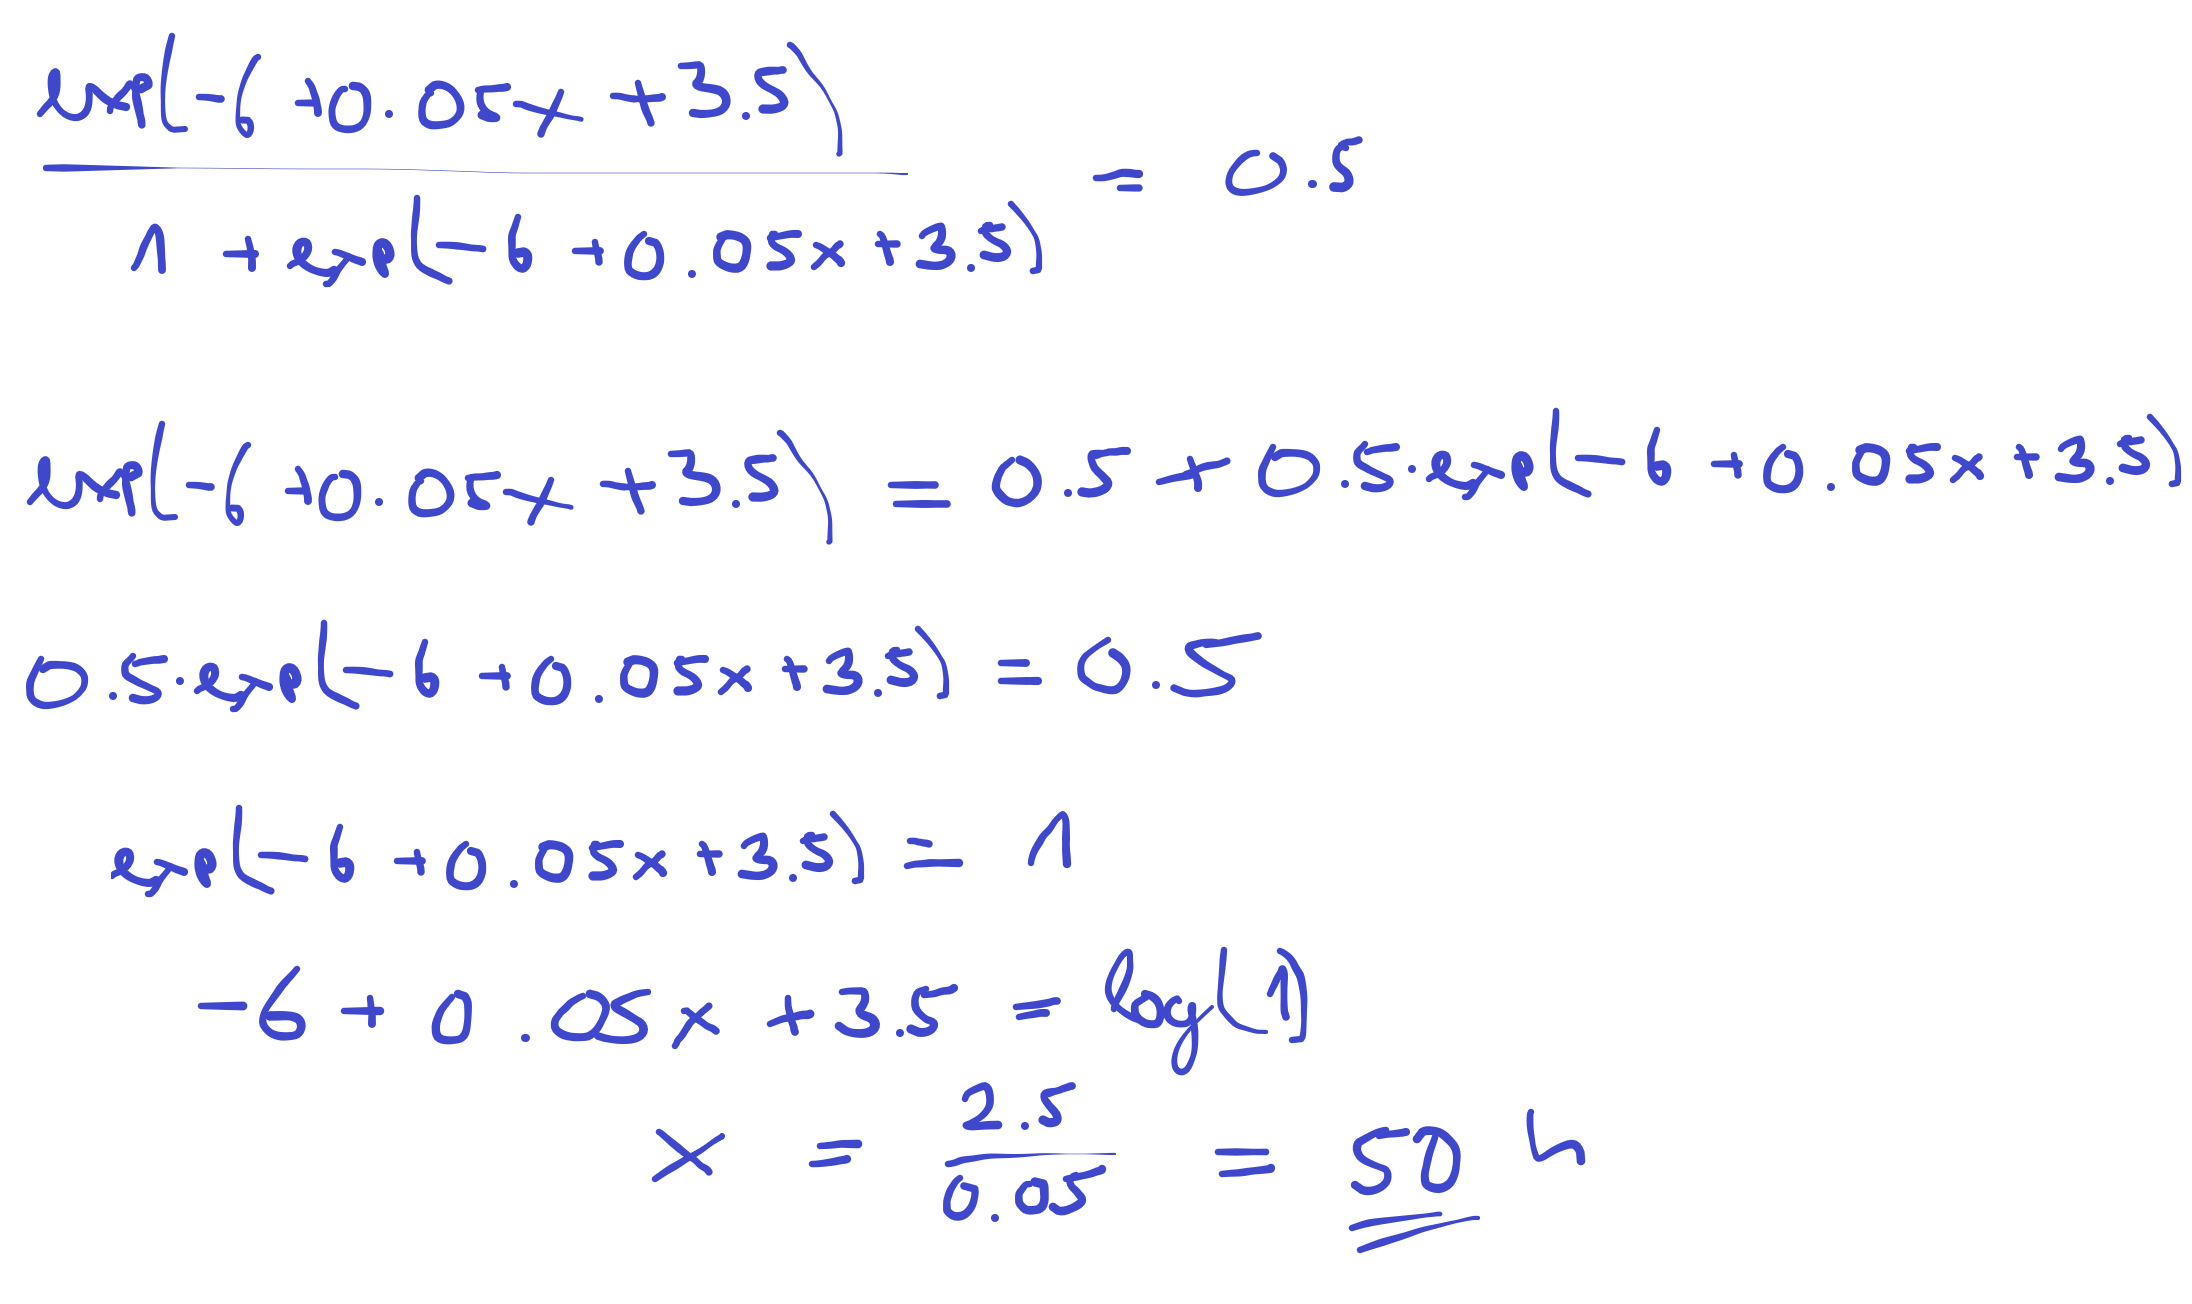 exp(-6 +0.05x +3.5)
1 + exp(-6 +0.05x+3.5)
= 0.5
exp(-6 +0.05x +3.5) = 0.5 + 0.5·exp(-6 +0.05x+3.5)
0.5·exp(-6 +0.05x+3.5) = 0.5
exp(-6 +0.05x+3.5) = 1
-6 + 0.05x +3.5 = log(1)
x = 2.5 / 0.05 = 50 h